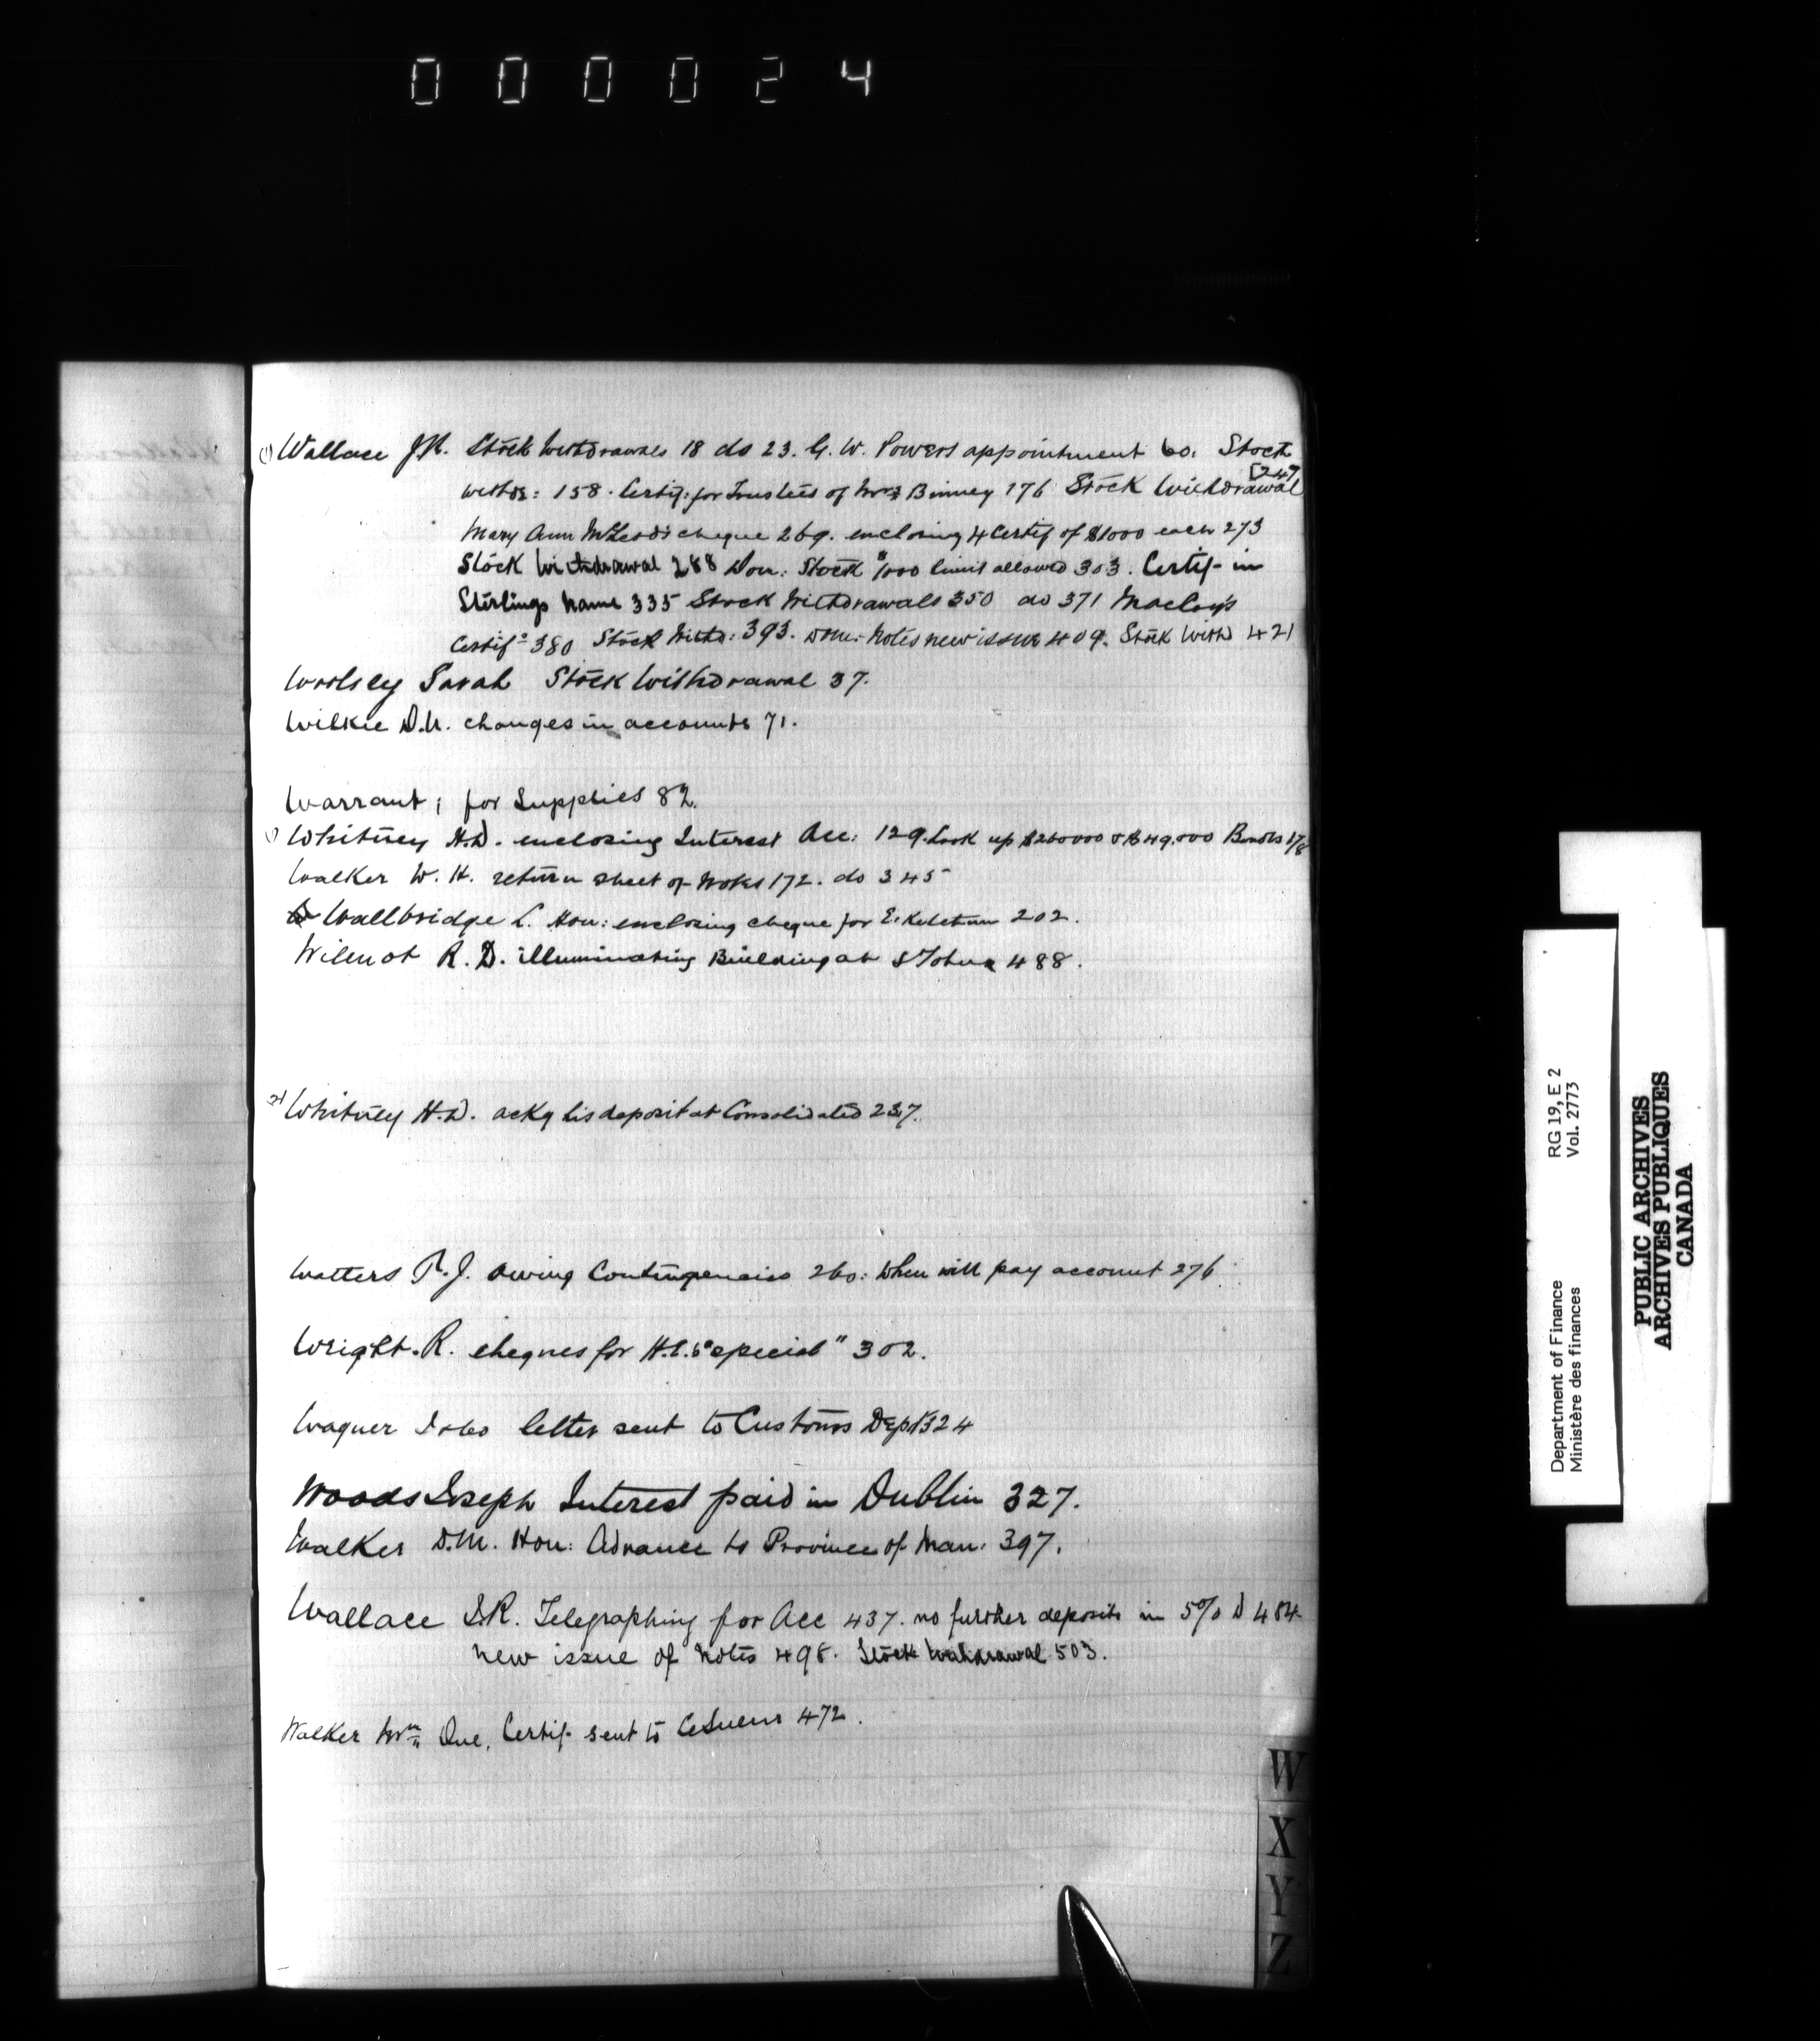 000024
(1) Wallace J.R. Stock Withdrawals 18 do 23. G. W. Powers appointment 60. Stock
[247
withds: 158. Certif: for Trustees of Mrs Binney 176 Stock Withdrawal
Mary Ann McLeod's cheque 269. enclosing 4 Certif of $1000 each 273
Stock Withdrawal 288 Dom: Stock $1000 limit allowed 303. Certif- in
Sterlings name 335 Stock Withdrawals 350 do 371
Certif: 380 Stock Withd: 393. Dom: Notes new issue 409. Stock With 421
Woolsey Sarah Stock Withdrawal 37.
Wilkie D.R. changes in accounts 71.
Warrant; for Supplies 82.
(1) Whitney H.D. enclosing Interest Acc: 129. Look up $260000 & $49,000 Bonds 178
Walker W. H. return sheet of Notes 172. do 345
Wallbridge L. Hon: enclosing cheque for E. Ketchum 202.
Wilmot R. D. illuminating Building at St John 488.
Whitney H.D. ackg his deposit at Consolidated 237.
Watters T. J. owing Contingencies 260: When will pay account 276
Wright. R. cheques for H.C. "special" 302.
Wagner letter sent to Customs Dept 324
Woods Joseph Interest paid in Dublin 327.
Walker D.M. Hon: Advance to Province of Man: 397.
Wallace J.R. Telegraphing for Acc 437. no further deposits in 5% D 484
New issue of Notes 498. Stock Withdrawal 503.
Walker Wm Que, Certif. sent to LeSueur 472.
W
X
Y
Z
Department of Finance RG 19, E 2
Ministère des finances Vol. 2773
PUBLIC ARCHIVES
ARCHIVES PUBLIQUES
CANADA